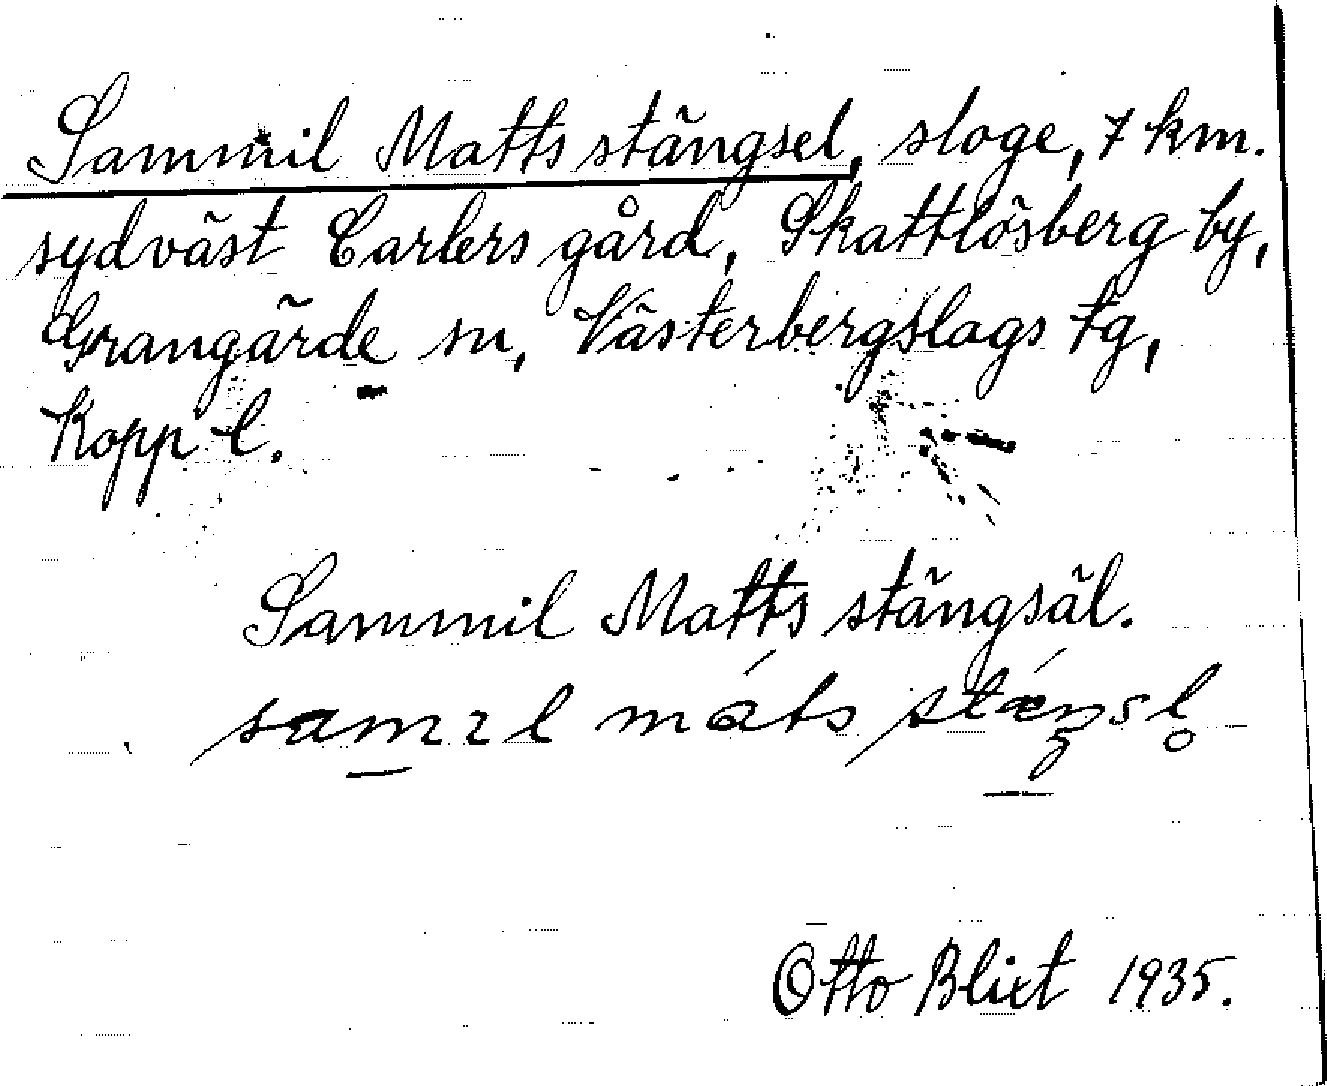 Sammil Matts stängsel, sloge, 7 km.
sydväst Carlers gård, Skattlösberg by,
Grangärde sn, Västerbergslags fg,
Kopp l.
Sammil Matts stängsäl.
Otto Blixt 1935.